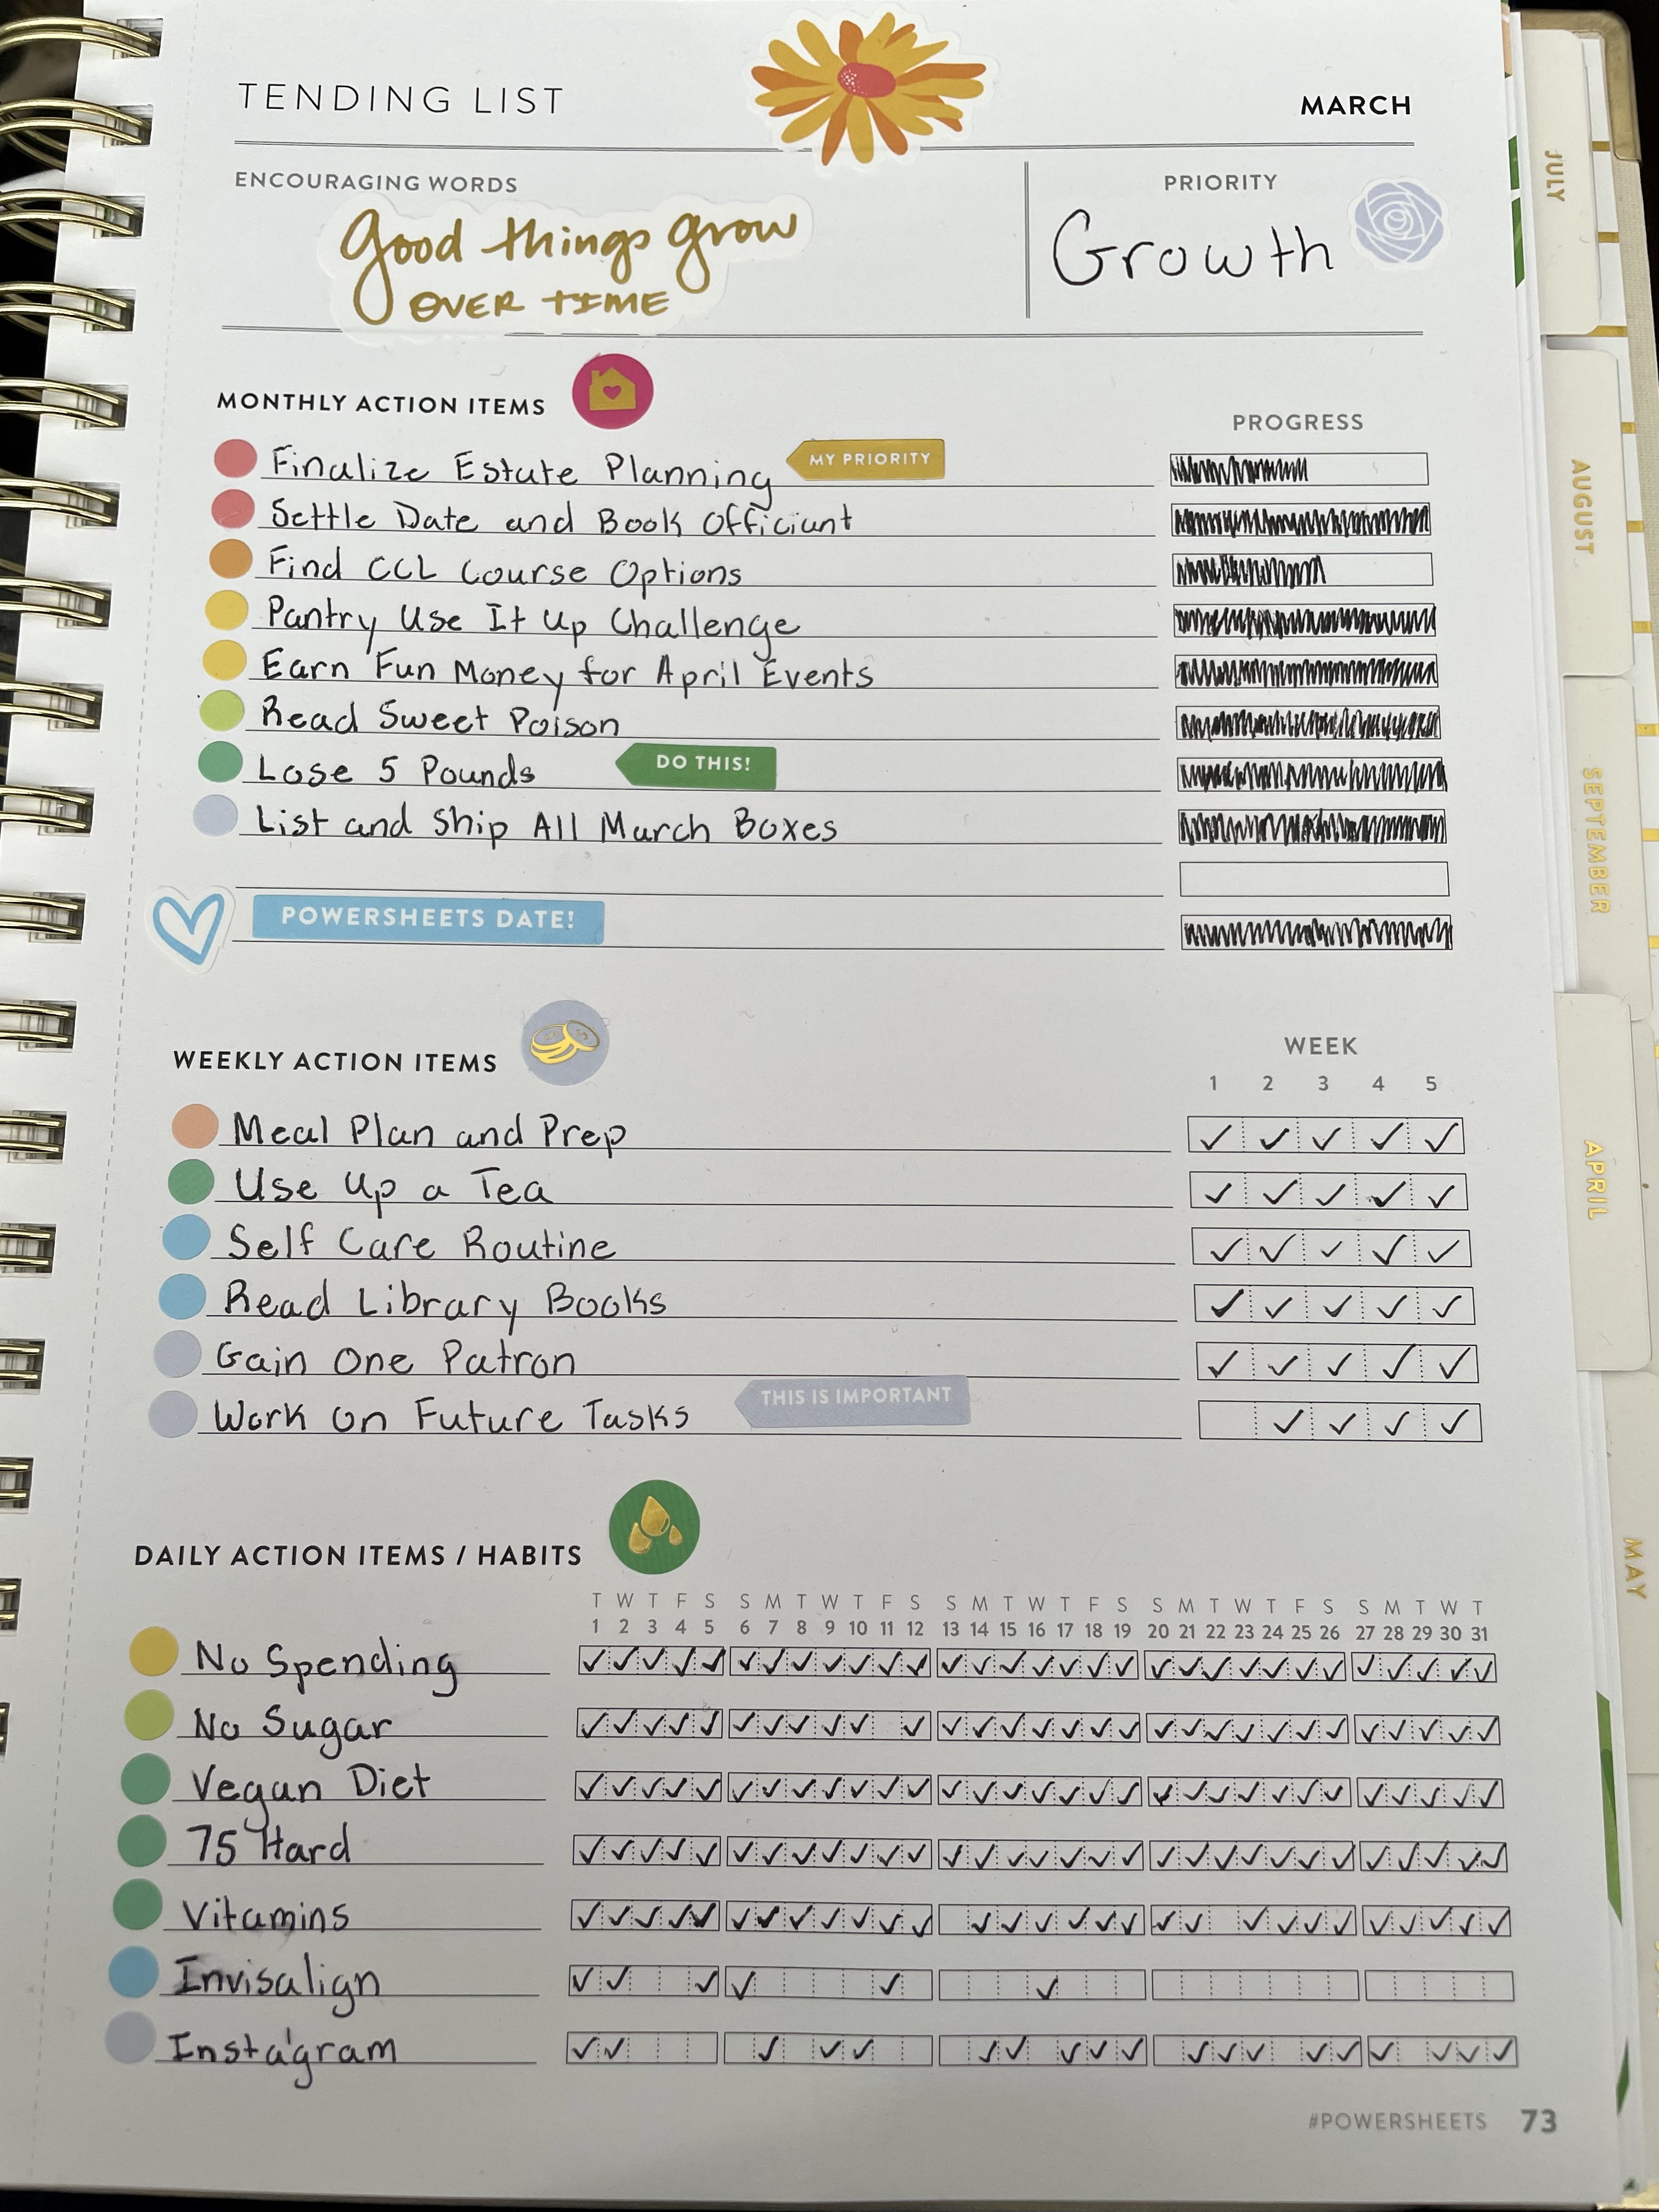 TENDING LIST
MARCH
ENCOURAGING WORDS
good things grow
OVER TIME
PRIORITY
Growth
MONTHLY ACTION ITEMS
PROGRESS
Finalize Estate Planning MY PRIORITY
Settle Date and Book Officiant
Find CCL Course Options
Pantry Use It Up Challenge
Earn Fun Money for April Events
Read Sweet Poison
Lose 5 Pounds DO THIS!
List and Ship All March Boxes
POWERSHEETS DATE!
WEEKLY ACTION ITEMS
WEEK
1 2 3 4 5
Meal Plan and Prep
Use Up a Tea
Self Care Routine
Read Library Books
Gain One Patron
Work on Future Tasks THIS IS IMPORTANT
DAILY ACTION ITEMS / HABITS
T W T F S S M T W T F S S M T W T F S S M T W T F S S M T W T
1 2 3 4 5 6 7 8 9 10 11 12 13 14 15 16 17 18 19 20 21 22 23 24 25 26 27 28 29 30 31
No Spending
No Sugar
Vegan Diet
75 Hard
Vitamins
Invisalign
Instagram
#POWERSHEETS 73
JULY
AUGUST
SEPTEMBER
APRIL
MAY